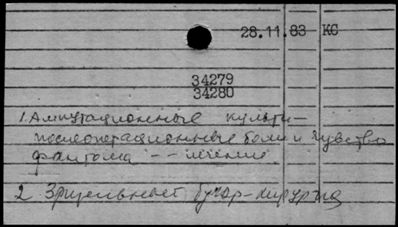 28.11.83 КС
34279
34280
1. Ампутационные культи -
послеоперационные боли и чувство
фантома -- лечение
2. Зрительный бугор - хирургия